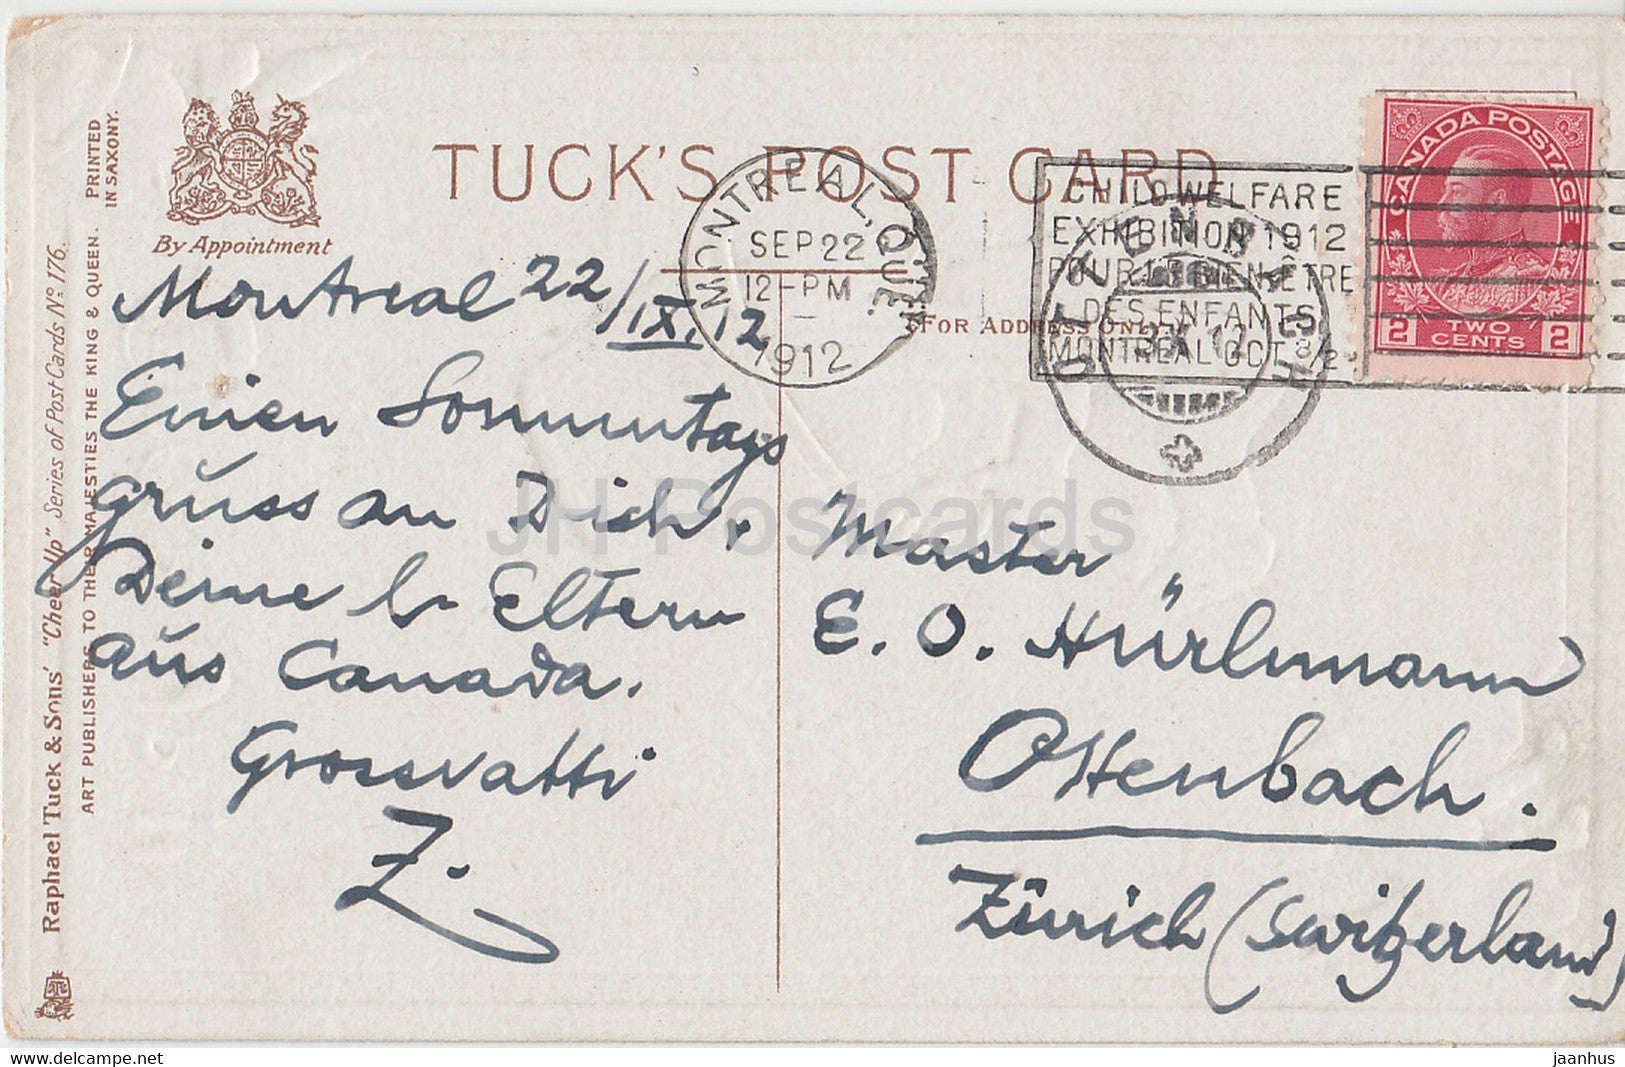 TUCK'S POST CARD
By Appointment
PRINTED
IN SAXONY.
Raphael Tuck & Sons' "Cheer Up" Series of Post Cards No. 176.
ART PUBLISHERS TO THEIR MAJESTIES THE KING & QUEEN.
FOR ADDRESS ONLY
MONTREAL, QUE.
SEP 22
12-PM
1912
CHILD WELFARE
EXHIBITION 1912
POUR LE BIEN-ÊTRE
DES ENFANTS
MONTREAL OCT.
CANADA POSTAGE
2 TWO CENTS 2
Montreal 22/IX.12
Einen Sonntags
gruss an Dich.
Deine l. Eltern
aus Canada.
Grossvatti
Z.
Master
E. O. Hürlimann
Ottenbach.
Zürich (Switzerland)
JH Postcards
www.delcampe.net
jaanhus